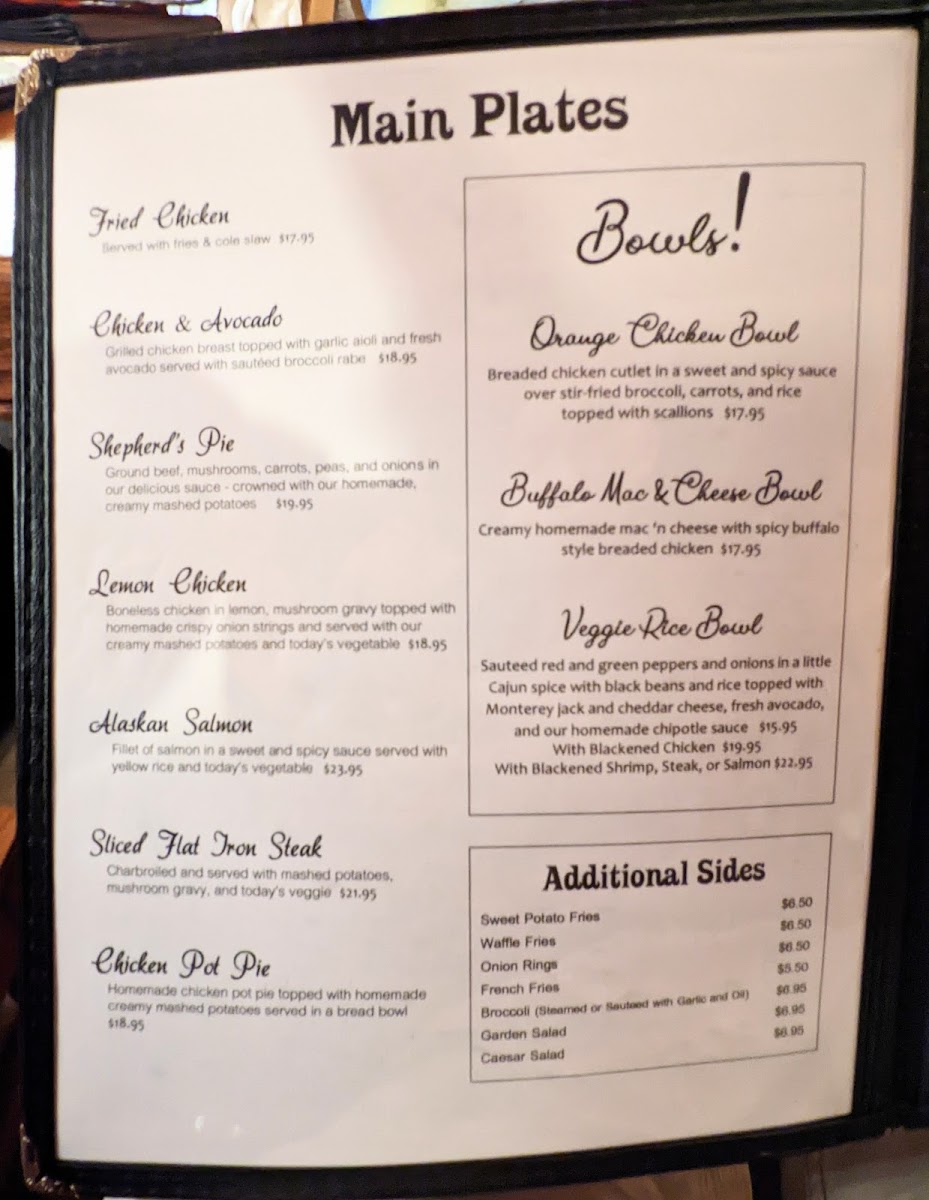 Main Plates
Fried Chicken
Served with fries & cole slaw $17.95
Chicken & Avocado
Grilled chicken breast topped with garlic aioli and fresh
avocado served with sautéed broccoli rabe $18.95
Shepherd's Pie
Ground beef, mushrooms, carrots, peas, and onions in
our delicious sauce - crowned with our homemade,
creamy mashed potatoes $19.95
Lemon Chicken
Boneless chicken in lemon, mushroom gravy topped with
homemade crispy onion strings and served with our
creamy mashed potatoes and today's vegetable $18.95
Alaskan Salmon
Fillet of salmon in a sweet and spicy sauce served with
yellow rice and today's vegetable $23.95
Sliced Flat Iron Steak
Charbroiled and served with mashed potatoes,
mushroom gravy, and today's veggie $21.95
Chicken Pot Pie
Homemade chicken pot pie topped with homemade
creamy mashed potatoes served in a bread bowl
$18.95
Bowls!
Orange Chicken Bowl
Breaded chicken cutlet in a sweet and spicy sauce
over stir-fried broccoli, carrots, and rice
topped with scallions $17.95
Buffalo Mac & Cheese Bowl
Creamy homemade mac 'n cheese with spicy buffalo
style breaded chicken $17.95
Veggie Rice Bowl
Sauteed red and green peppers and onions in a little
Cajun spice with black beans and rice topped with
Monterey jack and cheddar cheese, fresh avocado,
and our homemade chipotle sauce $15.95
With Blackened Chicken $19.95
With Blackened Shrimp, Steak, or Salmon $22.95
Additional Sides
Sweet Potato Fries $6.50
Waffle Fries $6.50
Onion Rings $6.50
French Fries $5.50
Broccoli (Steamed or Sauteed with Garlic and Oil) $6.95
Garden Salad $6.95
Caesar Salad $6.95